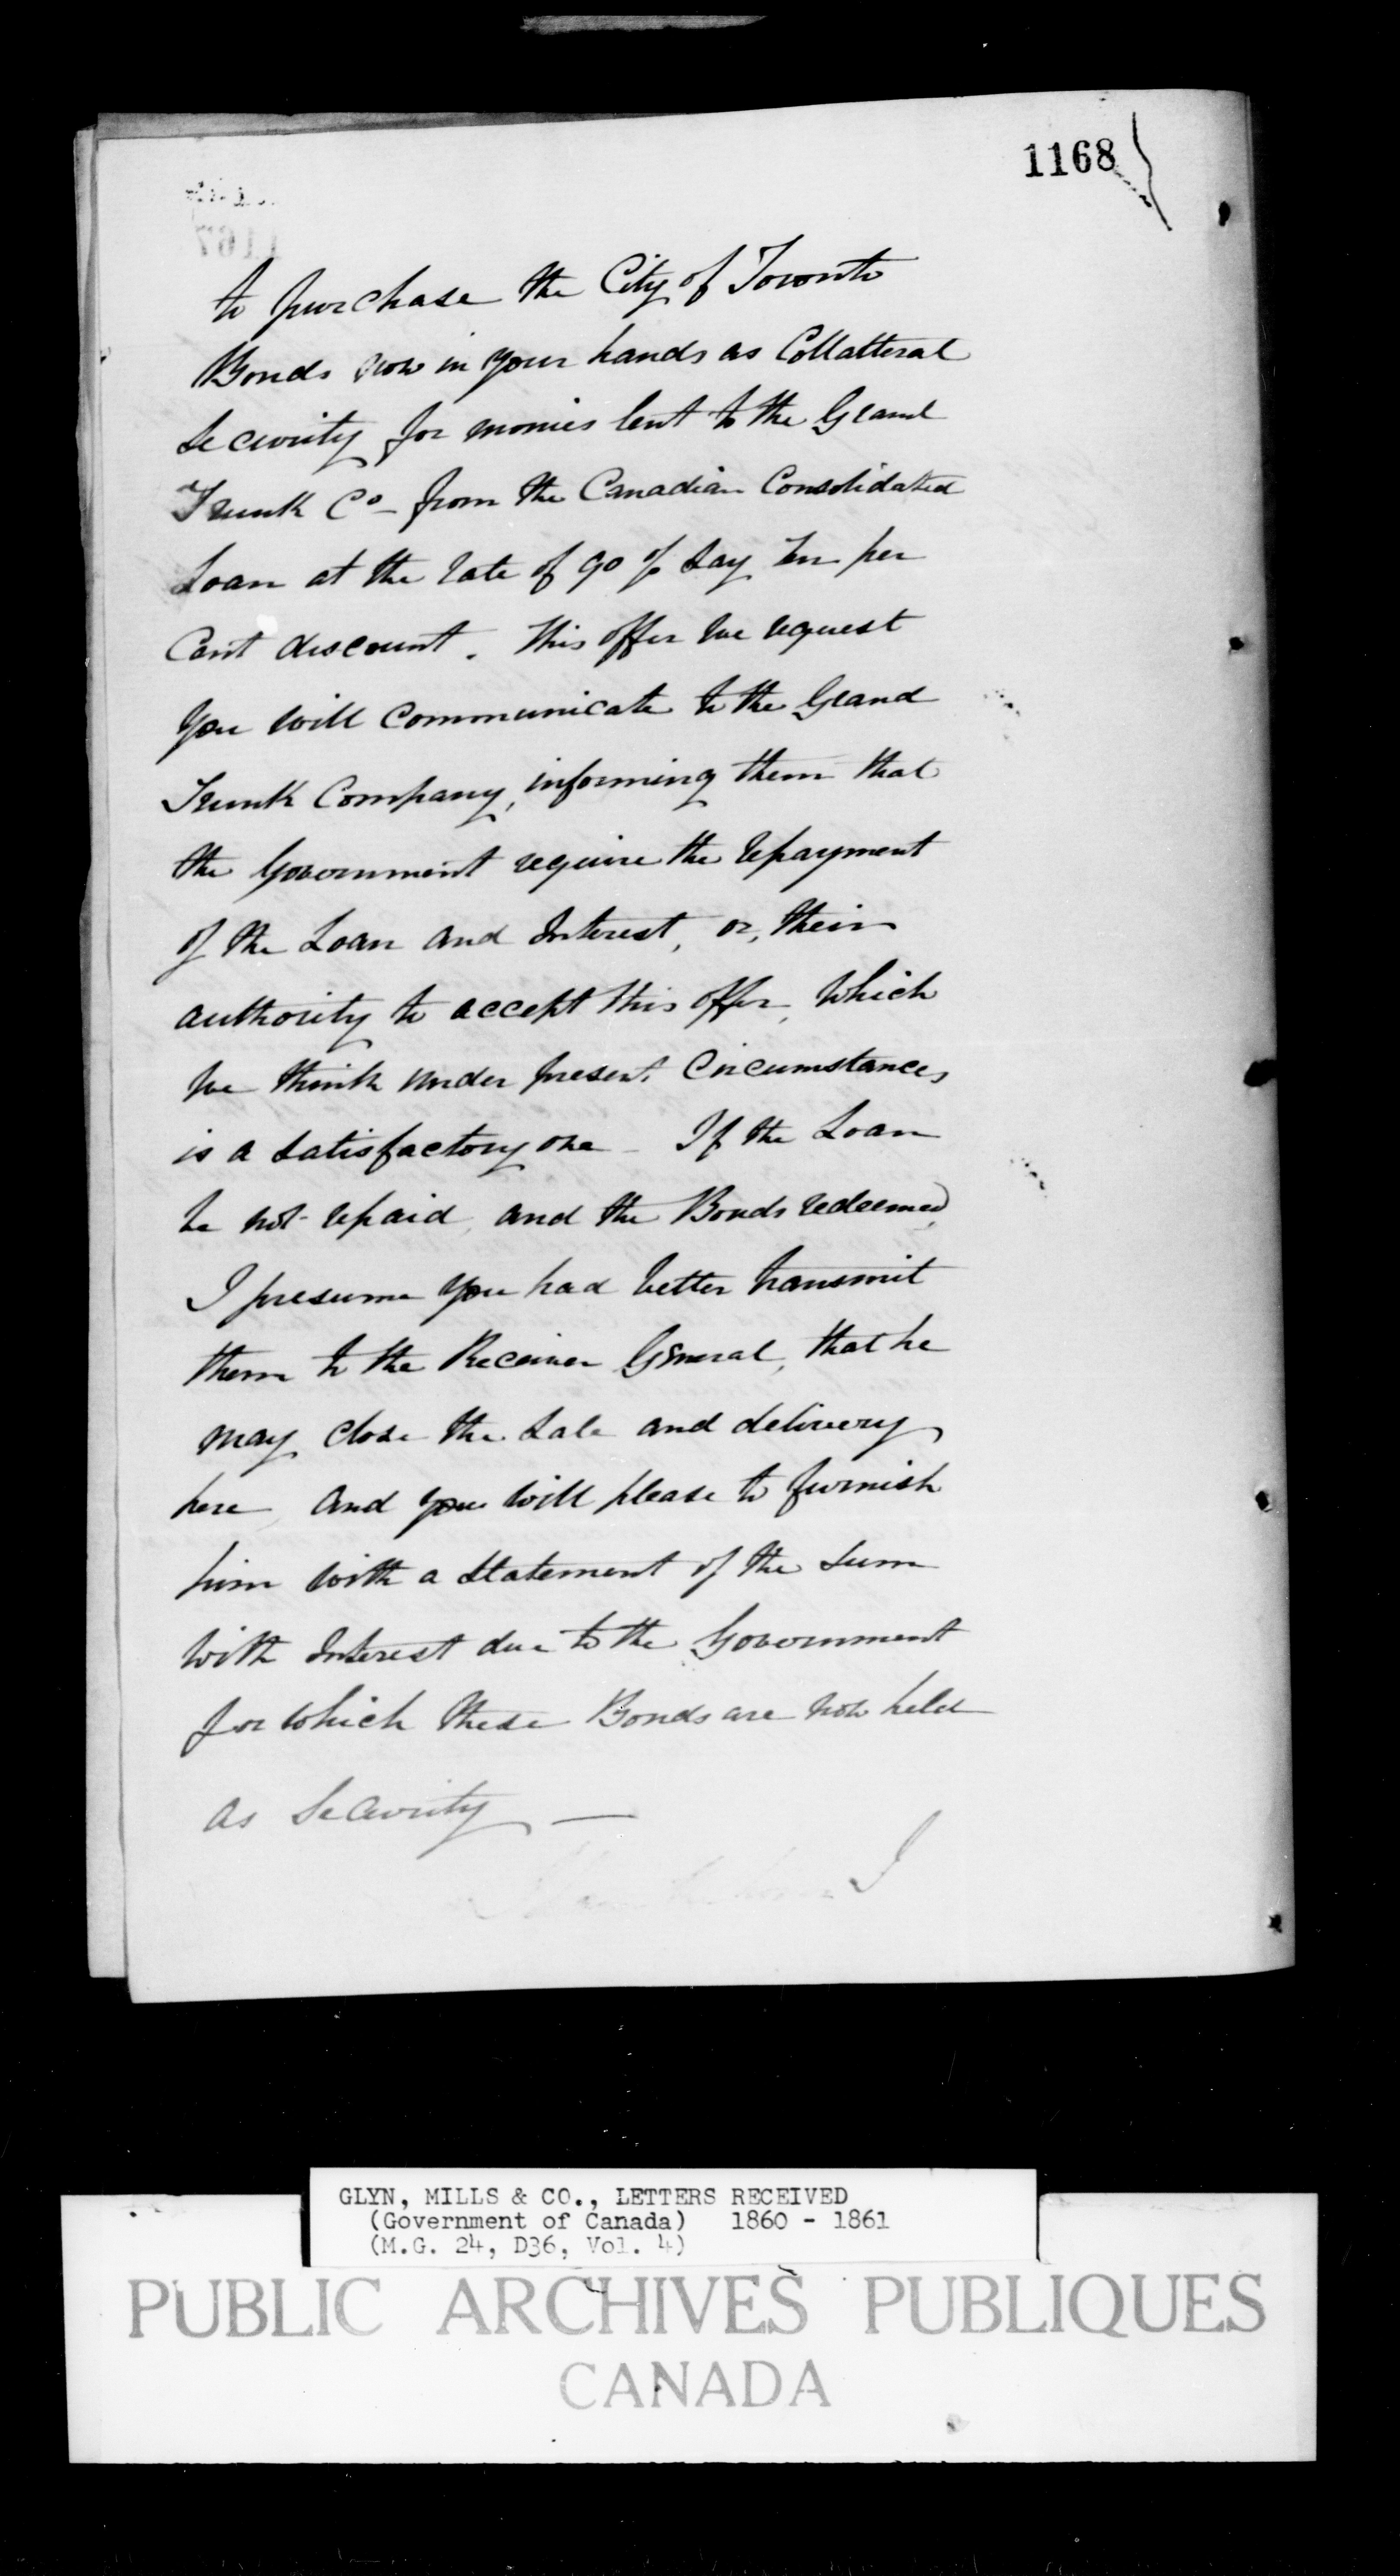 1168
to purchase the City of Toronto
Bonds now in your hands as Collatteral
Security for monies lent to the Grand
Trunk Co - from the Canadian Consolidated
Loan at the rate of 90 % say ten per
Cent discount. This offer we request
you will communicate to the Grand
Trunk Company, informing them that
the Government require the repayment
of the Loan and Interest, or, their
authority to accept this offer, which
we think under present Circumstances
is a satisfactory one - If the Loan
be not repaid, and the Bonds redeemed,
I presume you had better transmit
them to the Receiver General, that he
may close the sale and delivery
here and you will please to furnish
him with a statement of the sum
with Interest due to the Government
for which these Bonds are now held
as Security —
I
GLYN, MILLS & CO., LETTERS RECEIVED
(Government of Canada) 1860 - 1861
(M.G. 24, D36, Vol. 4)
PUBLIC ARCHIVES PUBLIQUES
CANADA